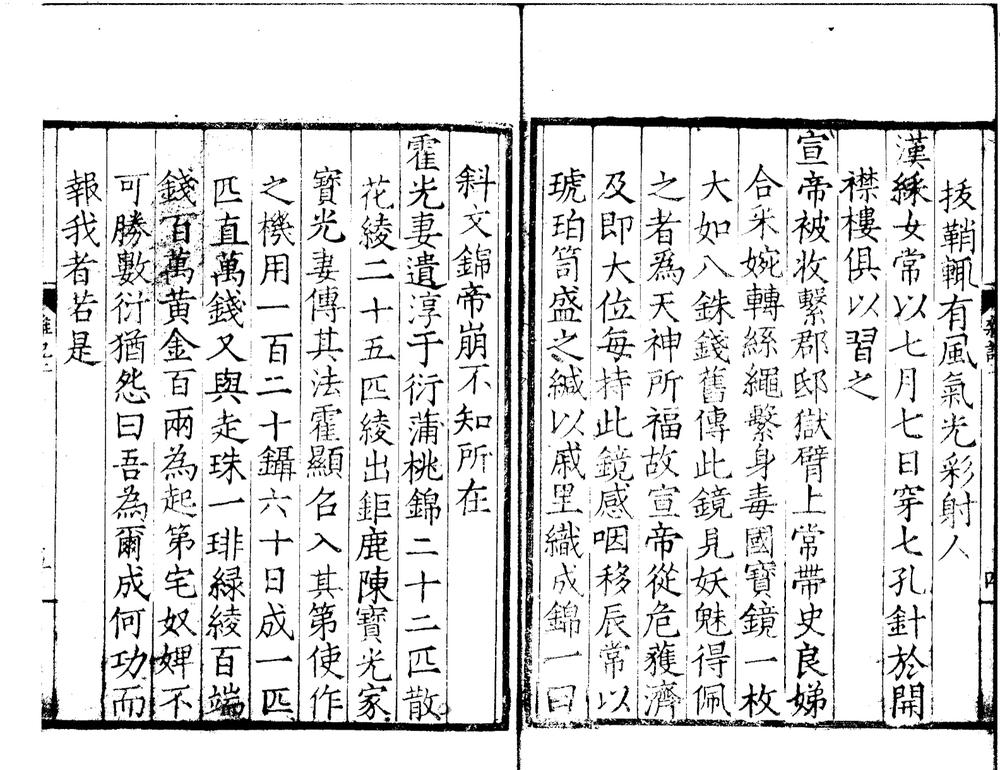 拔鞘輒有風氣光彩射人
漢綵女常以七月七日穿七孔針於開
襟樓俱以習之
宣帝被收繫郡邸獄臂上常帶史良娣
合采婉轉絲繩繫身毒國寶鏡一枚
大如八銖錢舊傳此鏡見妖魅得佩
之者為天神所福故宣帝從危獲濟
及即大位每持此鏡感咽移辰常以
琥珀笥盛之緘以戚里織成錦一曰
斜文錦帝崩不知所在
霍光妻遺淳于衍蒲桃錦二十二匹散
花綾二十五匹綾出鉅鹿陳寶光家
寶光妻傳其法霍顯召入其第使作
之機用一百二十鑷六十日成一匹
匹直萬錢又與走珠一琲緑綾百端
錢百萬黄金百兩為起第宅奴婢不
可勝數衍猶怨曰吾為爾成何功而
報我者若是